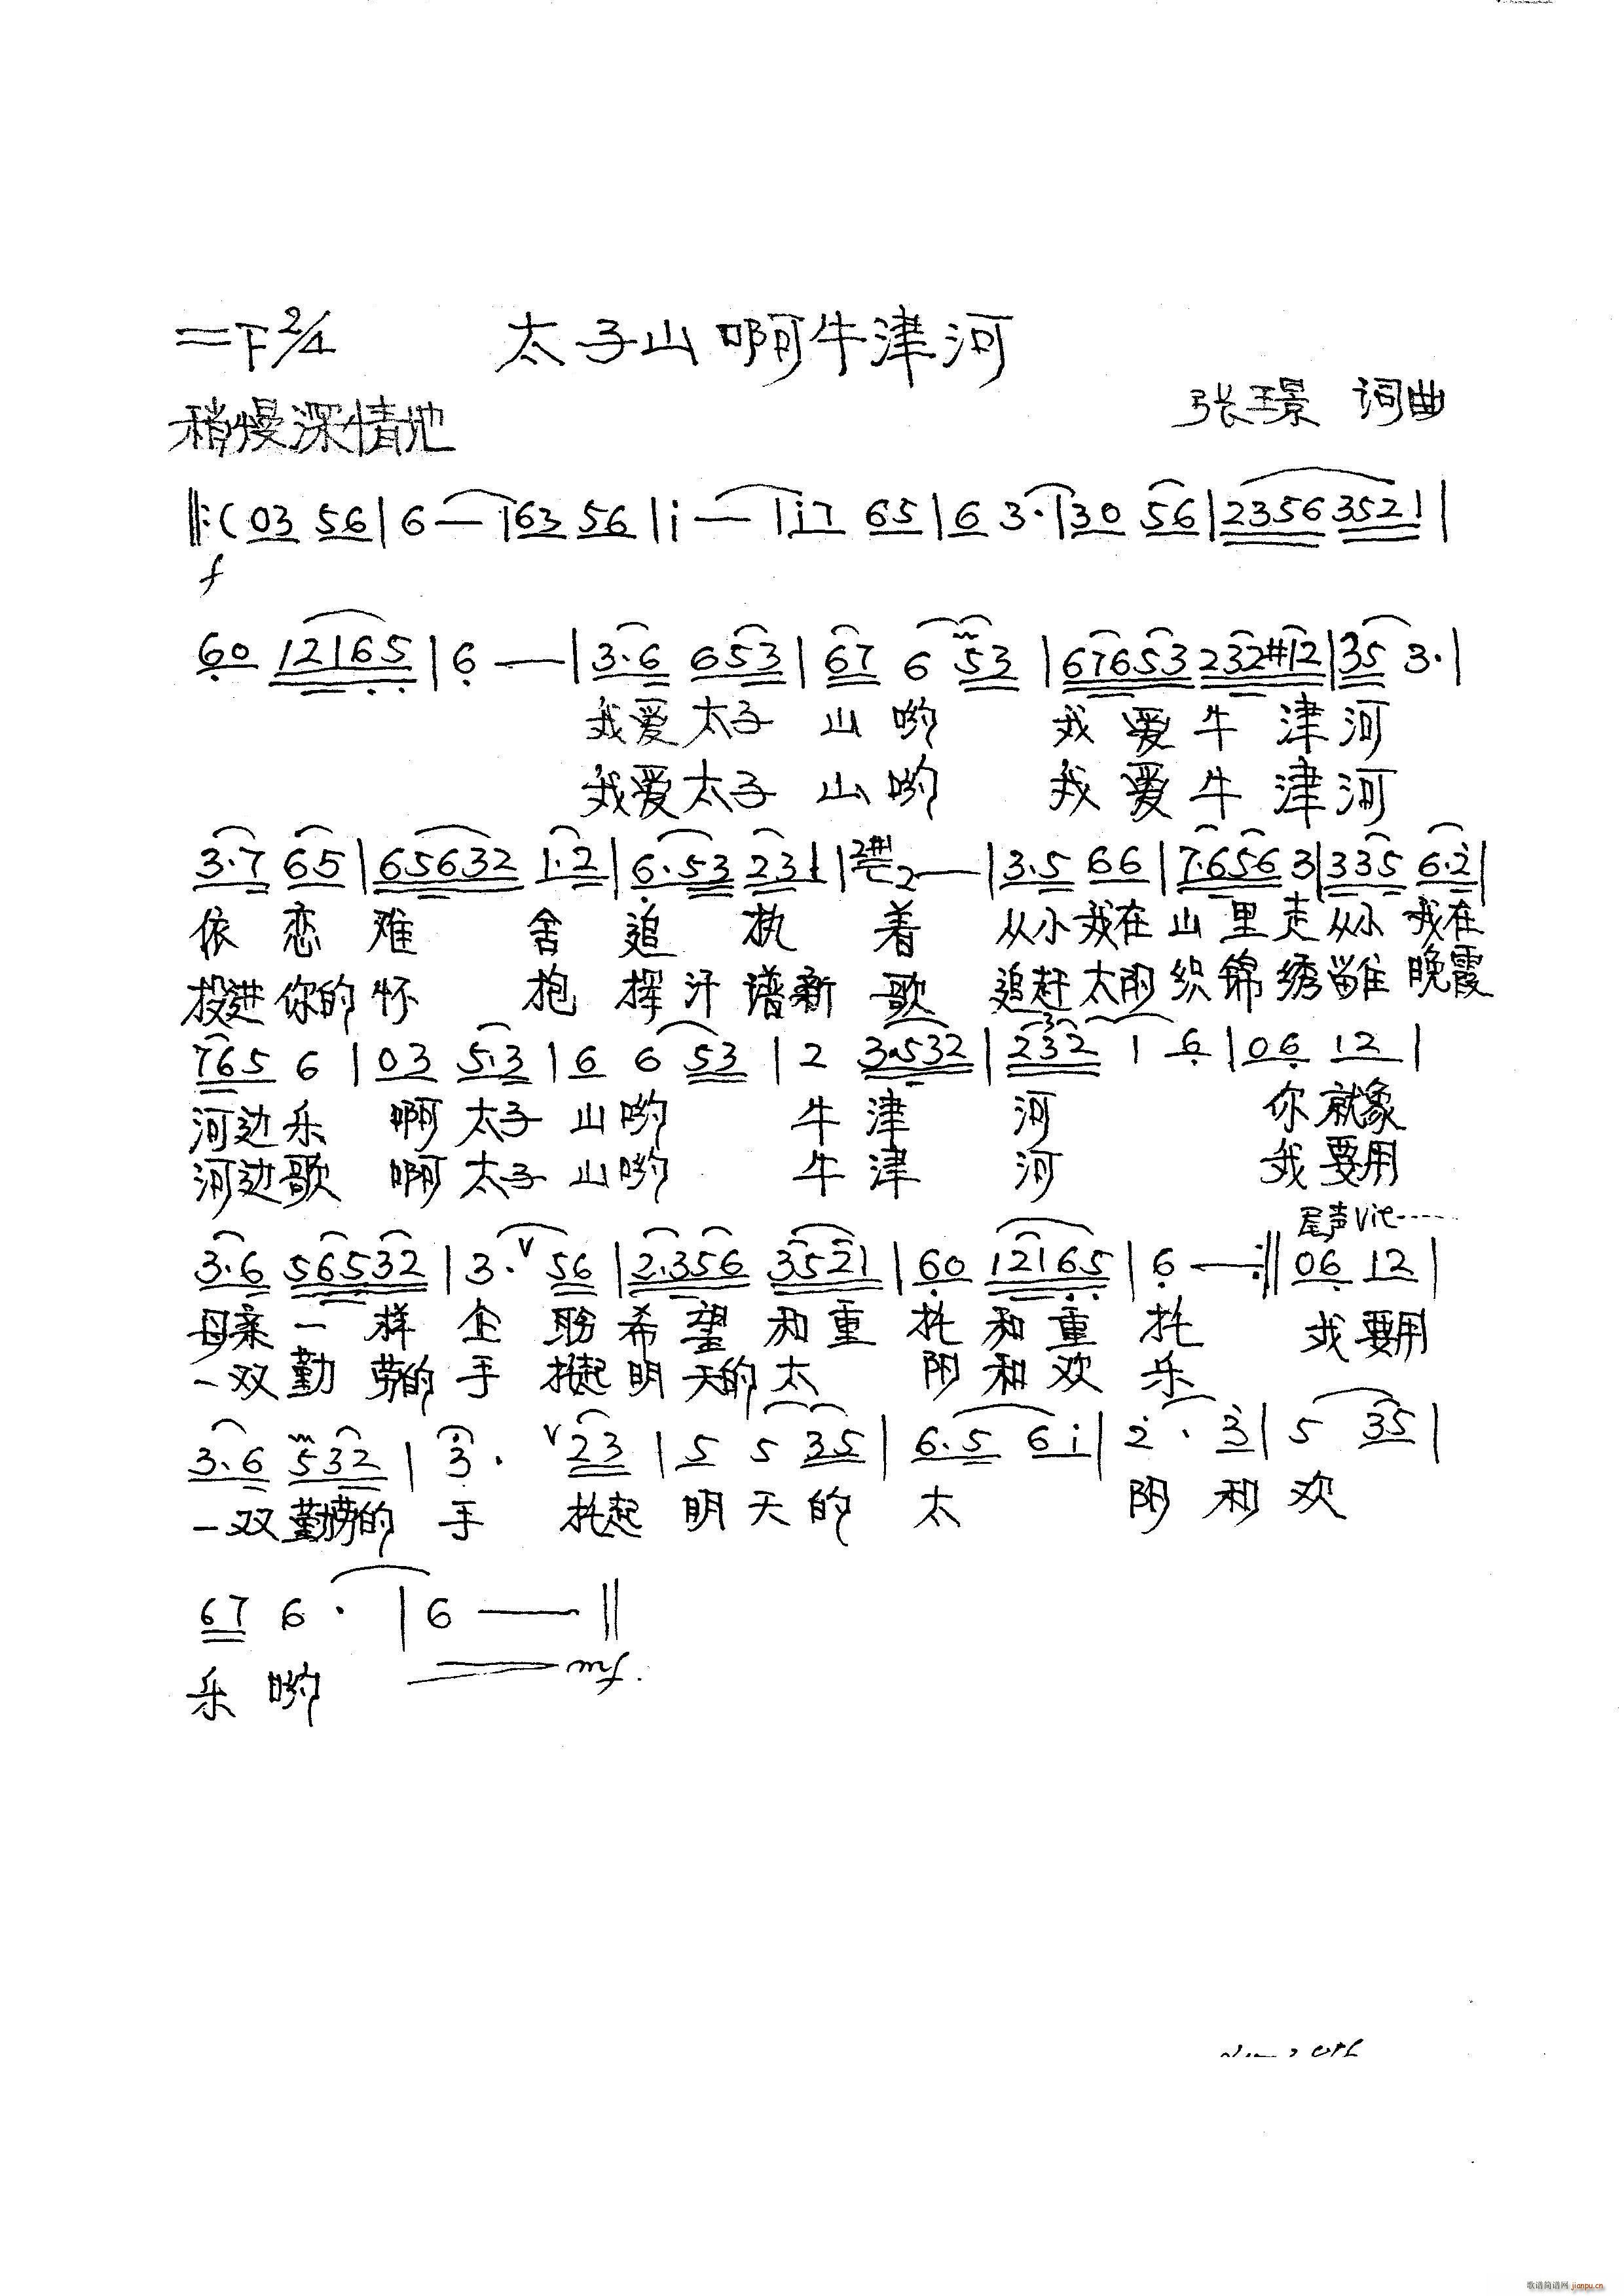 =F 2/4 太子山啊牛津河
张璟 词曲
稍慢深情地
‖:( 03 56 | 6 — | 63 56 | i — | i7 65 | 6 3· | 30 56 | 2356 3521 |
f
60 12165 | 6 — | 3·6 653 | 67 6 53 | 67653 232#12 | 35 3· |
我爱太子 山 哟 我 爱 牛 津 河
我爱太子 山 哟 我 爱 牛 津 河
3·7 65 | 65632 1·2 | 6·53 231 | 2#1 2 — | 3·5 66 | 7·656 3 | 335 6·2 |
依 恋 难 舍 追 执 着 从小我在山里走从小 我在
投进你的怀 抱 挥汗谱新 歌 追赶太阳织锦绣 晚霞
765 6 | 03 5·3 | 6 6 53 | 2 3·532 | 232 1 6 | 06 12 |
河边乐 啊太子 山哟 牛 津 河 你就象
河边歌 啊太子 山哟 牛 津 河 我要用
尾声
3·6 56532 | 3· V 56 | 2·356 3521 | 60 12165 | 6 — :‖ 06 12 |
母亲 一 样 企 盼希 望 和重 托 和重 托 我要用
一双勤 劳的 手 托起 明 天的 太 阳 和欢 乐
3·6 532 | 3· V 23 | 5 5 35 | 6·5 6i | 2 · 3 | 5 35 |
一双勤劳的 手 托起 明 天 的 太 阳 和 欢
67 6 · | 6 — ‖
乐 哟 mf.
歌谱简谱网
jianpu.cn